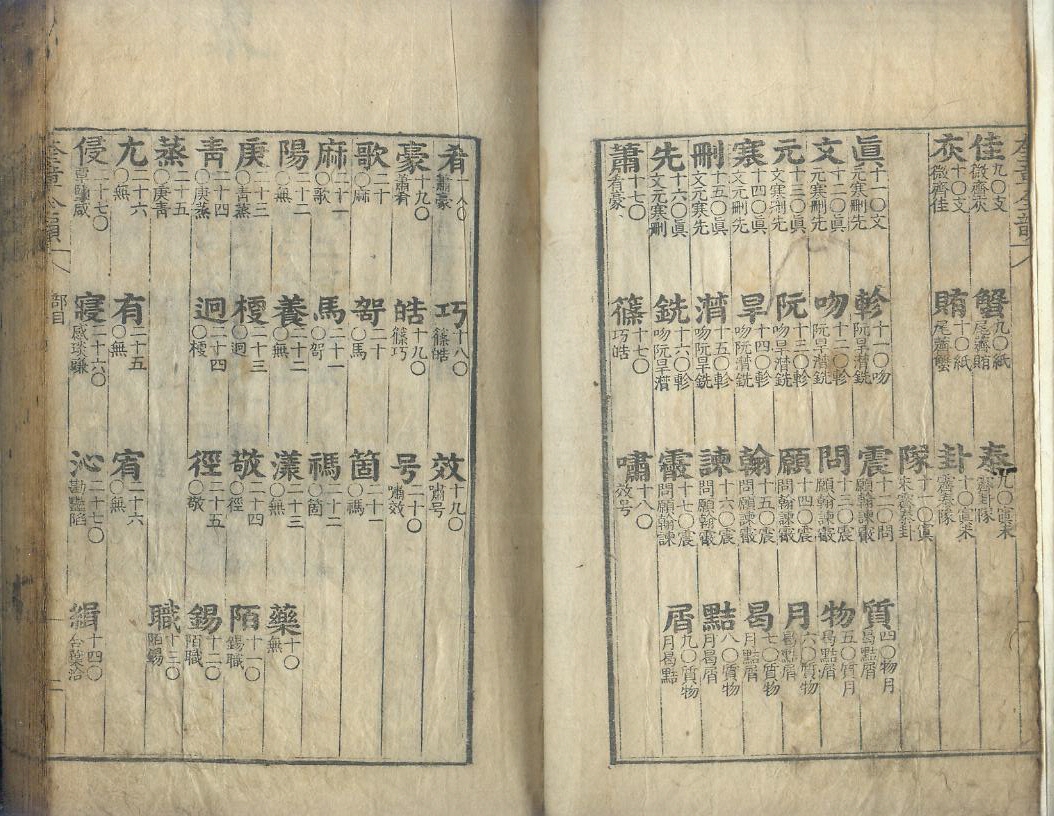 佳九○支微齊灰 蟹九○紙尾薺賄 泰九○寘未霽卦隊
灰十○支微齊佳 賄十○紙尾薺蟹 卦十○寘未霽泰隊
隊十一○寘未霽泰卦
眞十一○文元寒刪先 軫十一○吻阮旱潸銑 震十二○問願翰諫霰 質四○物月曷黠屑
文十二○眞元寒刪先 吻十二○軫阮旱潸銑 問十三○震願翰諫霰 物五○質月曷黠屑
元十三○眞文寒刪先 阮十三○軫吻旱潸銑 願十四○震問翰諫霰 月六○質物曷黠屑
寒十四○眞文元刪先 旱十四○軫吻阮潸銑 翰十五○震問願諫霰 曷七○質物月黠屑
刪十五○眞文元寒先 潸十五○軫吻阮旱銑 諫十六○震問願翰霰 黠八○質物月曷屑
先十六○眞文元寒刪 銑十六○軫吻阮旱潸 霰十七○震問願翰諫 屑九○質物月曷黠
蕭十七○肴豪 篠十七○巧皓 嘯十八○效号
肴十八○蕭豪 巧十八○篠皓 效十九○嘯号
豪十九○蕭肴 皓十九○篠巧 号二十○嘯效
歌二十○麻 哿二十○馬 箇二十一○禡
麻二十一○歌 馬二十一○哿 禡二十二○箇
陽二十二○無 養二十二○無 漾二十三○無 藥十○無
庚二十三○靑蒸 梗二十三○迥 敬二十四○徑 陌十一○錫職
靑二十四○庚蒸 迥二十四○梗 徑二十五○敬 錫十二○陌職
蒸二十五○庚靑 職十三○陌錫
尤二十六○無 有二十五○無 宥二十六○無
侵二十七○覃鹽咸 寢二十六○感琰豏 沁二十七○勘豔陷 緝十四○合葉洽
奎章全韻 部目 二